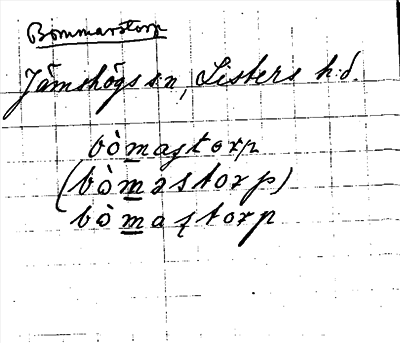 Bommarstorp
Jämshögs sn, Listers h:d.
bòm̲aştorp
(bòm̲əstòrp)
bòm̲aştorp